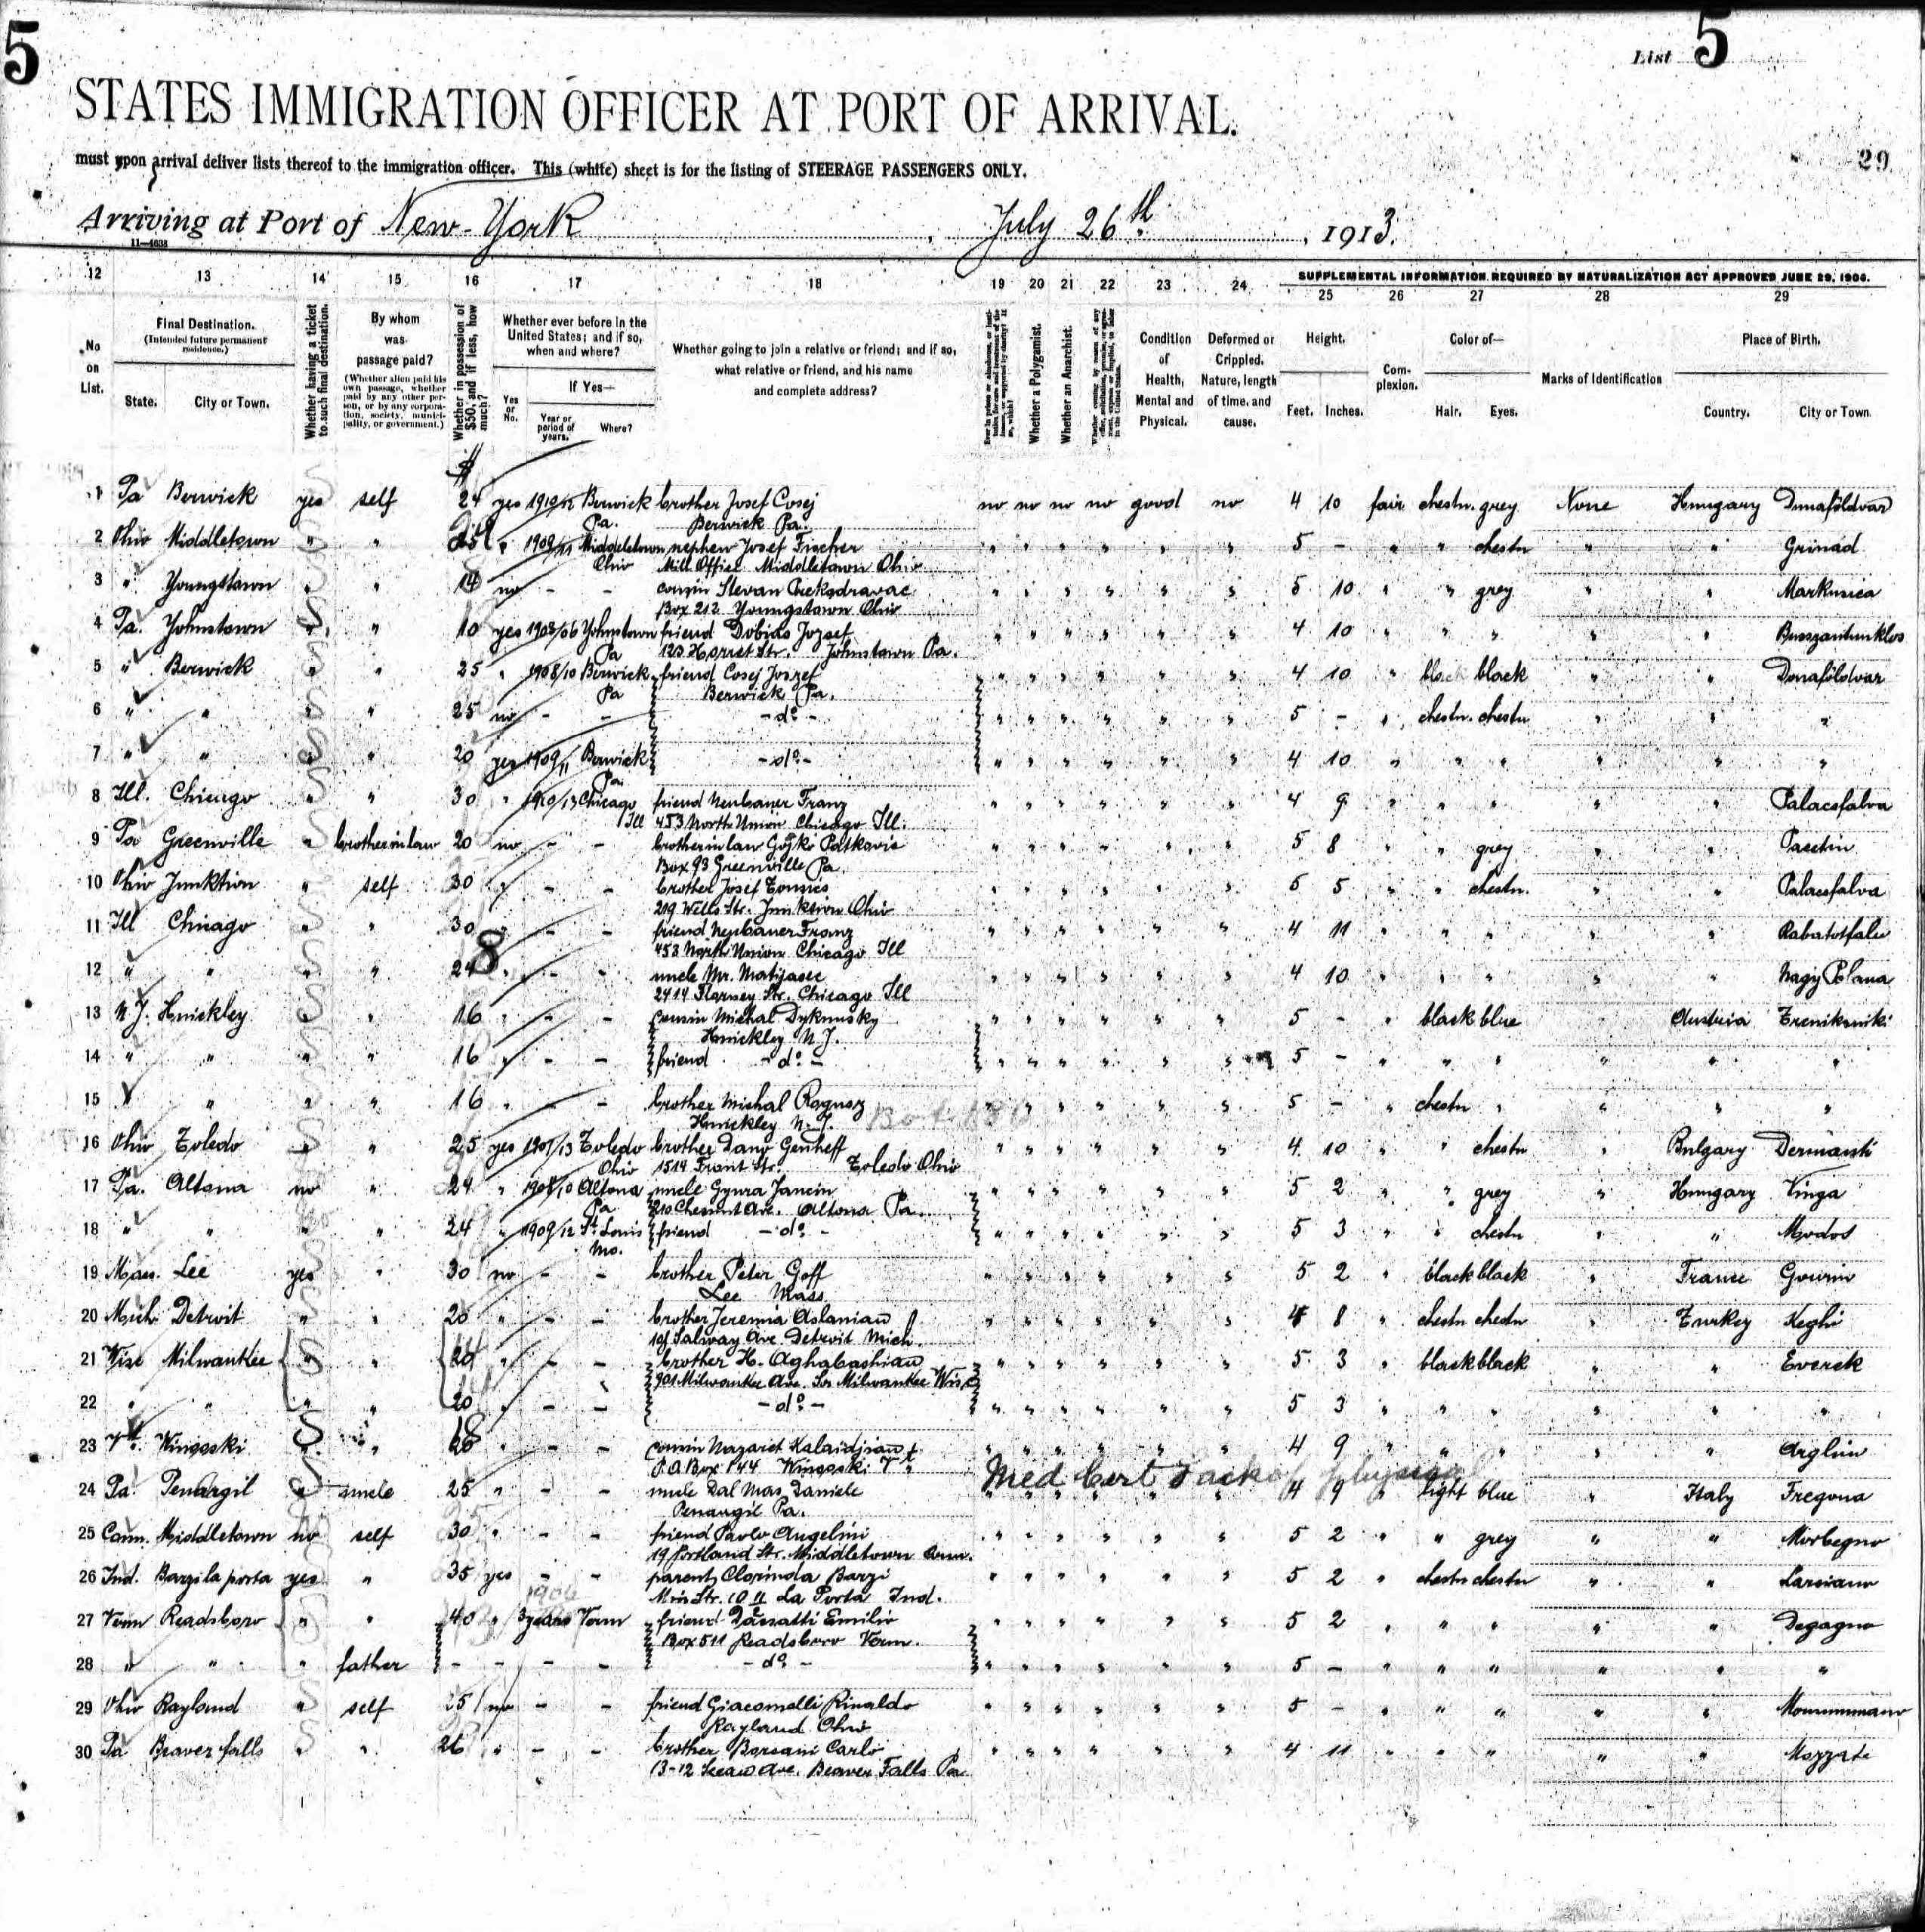 5
List 5
STATES IMMIGRATION OFFICER AT PORT OF ARRIVAL.
must upon arrival deliver lists thereof to the immigration officer. This (white) sheet is for the listing of STEERAGE PASSENGERS ONLY.
29
Arriving at Port of New-York, July 26th, 1913.
11—4638
SUPPLEMENTAL INFORMATION REQUIRED BY NATURALIZATION ACT APPROVED JUNE 29, 1906.
12 13 14 15 16 17 18 19 20 21 22 23 24 25 26 27 28 29
No on List.
Final Destination.
(Intended future permanent residence.)
State. City or Town.
Whether having a ticket to such final destination.
By whom was passage paid?
(Whether alien paid his own passage, whether paid by any other person, or by any corporation, society, municipality, or government.)
Whether in possession of $50, and if less, how much?
Whether ever before in the United States; and if so, when and where?
Yes or No.
If Yes—
Year or period of years. Where?
Whether going to join a relative or friend; and if so, what relative or friend, and his name and complete address?
Whether a Polygamist.
Whether an Anarchist.
Condition of Health, Mental and Physical.
Deformed or Crippled. Nature, length of time, and cause.
Height.
Feet. Inches.
Complexion.
Color of—
Hair. Eyes.
Marks of Identification
Place of Birth.
Country. City or Town.
$
1 Pa Berwick yes self 24 yes 1910/12 Berwick brother Josef Cosej no no no no good no 4 10 fair chestn. grey None Hungary Dunaföldvar
Pa. Berwick Pa.
2 Ohio Middletown " " 25 " 1908/11 Middletown nephew Josef Fischer " " " " " " 5 - " " chestn " " Grinad
Ohio Mill Office Middletown Ohio
3 " Youngstown " " 14 no - - cousin Stevan " " " " " " 5 10 " " grey " " Markusica
Box 212 Youngstown Ohio
4 Pa. Johnstown " " 10 yes 1903/06 Johnstown friend Dobias Jozsef " " " " " " 4 10 " " " " "
Pa 123 Str. Johnstown Pa.
5 " Berwick " " 25 " 1908/10 Berwick friend Cosej Joszef " " " " " " 4 10 " black black " " Dunaföldvar
Pa Berwick Pa.
6 " " " " 25 no - - - do - " " " " " " 5 - " chestn. chestn " " "
7 " " " " 20 yes 1909/11 Berwick - do - " " " " " " 4 10 " " " " " "
Pa.
8 Ill. Chicago " " 30 " 1910/13 Chicago friend Neubauer Franz " " " " " " 4 9 " " " " " Palacsfalva
Ill 453 North Union Chicago Ill.
9 Pa Greenville " brother in law 20 no - - brother in law Gojko Patkovic " " " " " " 5 8 " " grey " " Pacetin
Box 93 Greenville Pa.
10 Ohio Junktion " self 30 " - - brother Josef " " " " " " 5 5 " " chestn. " " Palacsfalva
219 Wells Str. Junktion Ohio
11 Ill Chicago " " 30 " - - friend Neubauer Franz " " " " " " 4 11 " " " " " Rabatotfalu
453 North Union Chicago Ill
8
12 " " " " 24 " - - uncle Mr. Matijasec " " " " " " 4 10 " " " " " Nagy Polana
2414 Str. Chicago Ill
13 N.J. Hnickley " " 16 " - - cousin Michal " " " " " " 5 - " black blue " Austria
Hnickley N.J.
14 " " " " 16 " - - friend - do - " " " " " " 5 - " " " " " "
15 " " " " 16 " - - brother Michal Ragnoz " " " " " " 5 - " chestn " " " "
Hnickley N.J.
16 Ohio Toledo " " 25 yes 1901/13 Toledo brother Dano Gencheff " " " " " " 4 10 " " chestn Bulgary
Ohio 1514 Front Str. Toledo Ohio
17 Pa. Altona no " 24 " 1908/10 Altona uncle Gyura Jancin " " " " " " 5 2 " " grey " Hungary Vinga
Pa 210 Chesnut Ave. Altona Pa.
18 " " " " 24 " 1909/12 St. Louis friend - do - " " " " " " 5 3 " " chestn " " Modos
Mo.
19 Mass. Lee yes " 30 no - - brother Peter Goff " " " " " " 5 2 " black black " France Gourin
Lee Mass.
20 Mich. Detroit " " 20 " - - brother Jeremia Aslanian " " " " " " 4 8 " chestn chestn " Turkey Keghi
Salway Ave. Detroit Mich.
21 Wisc Milwaukee " " 20 " - - brother H. Aghabashian " " " " " " 5 3 " black black " " Everek
901 Milwaukee Ave. So. Milwaukee Wisc
22 " " " " 20 " - - - do - " " " " " " 5 3 " " " " " "
18
23 Vt. Winooski " " 20 " - - cousin Nazaret Kalaidjian " " " " " " 4 9 " " " " " Arghin
P.O. Box 144 Winooski Vt
Med Cert Lack of physical
24 Pa. Penargil " uncle 25 " - - uncle Dal Mas Daniele " " " " " " 4 9 " light blue " Italy Fregona
Penargil Pa.
25 Conn. Middletown no self 30 " - - friend Paolo Angelini " " " " " " 5 2 " " grey " " Morbegno
19 Portland Str. Middletown Conn.
26 Ind. Barzi la porta yes " 35 yes - - parents Clorinda Barzi " " " " " " 5 2 " chestn chestn " " Larciano
Str. 10 11 La Porta Ind.
27 Verm Readsboro " " 40 " 3 years Verm friend Emilio " " " " " " 5 2 " " " " " Degagna
Box 511 Readsboro Verm.
28 " " " father - - - - - do - " " " " " " 5 - " " " " " "
29 Ohio Rayland " self 25 no - - friend Giacomelli Rinaldo " " " " " " 5 - " " " " "
Rayland Ohio
30 Pa Beaver falls " " 26 " - - brother Borsani Carlo " " " " " " 4 11 " " " " " Mozzate
13-12 Ave. Beaver Falls Pa